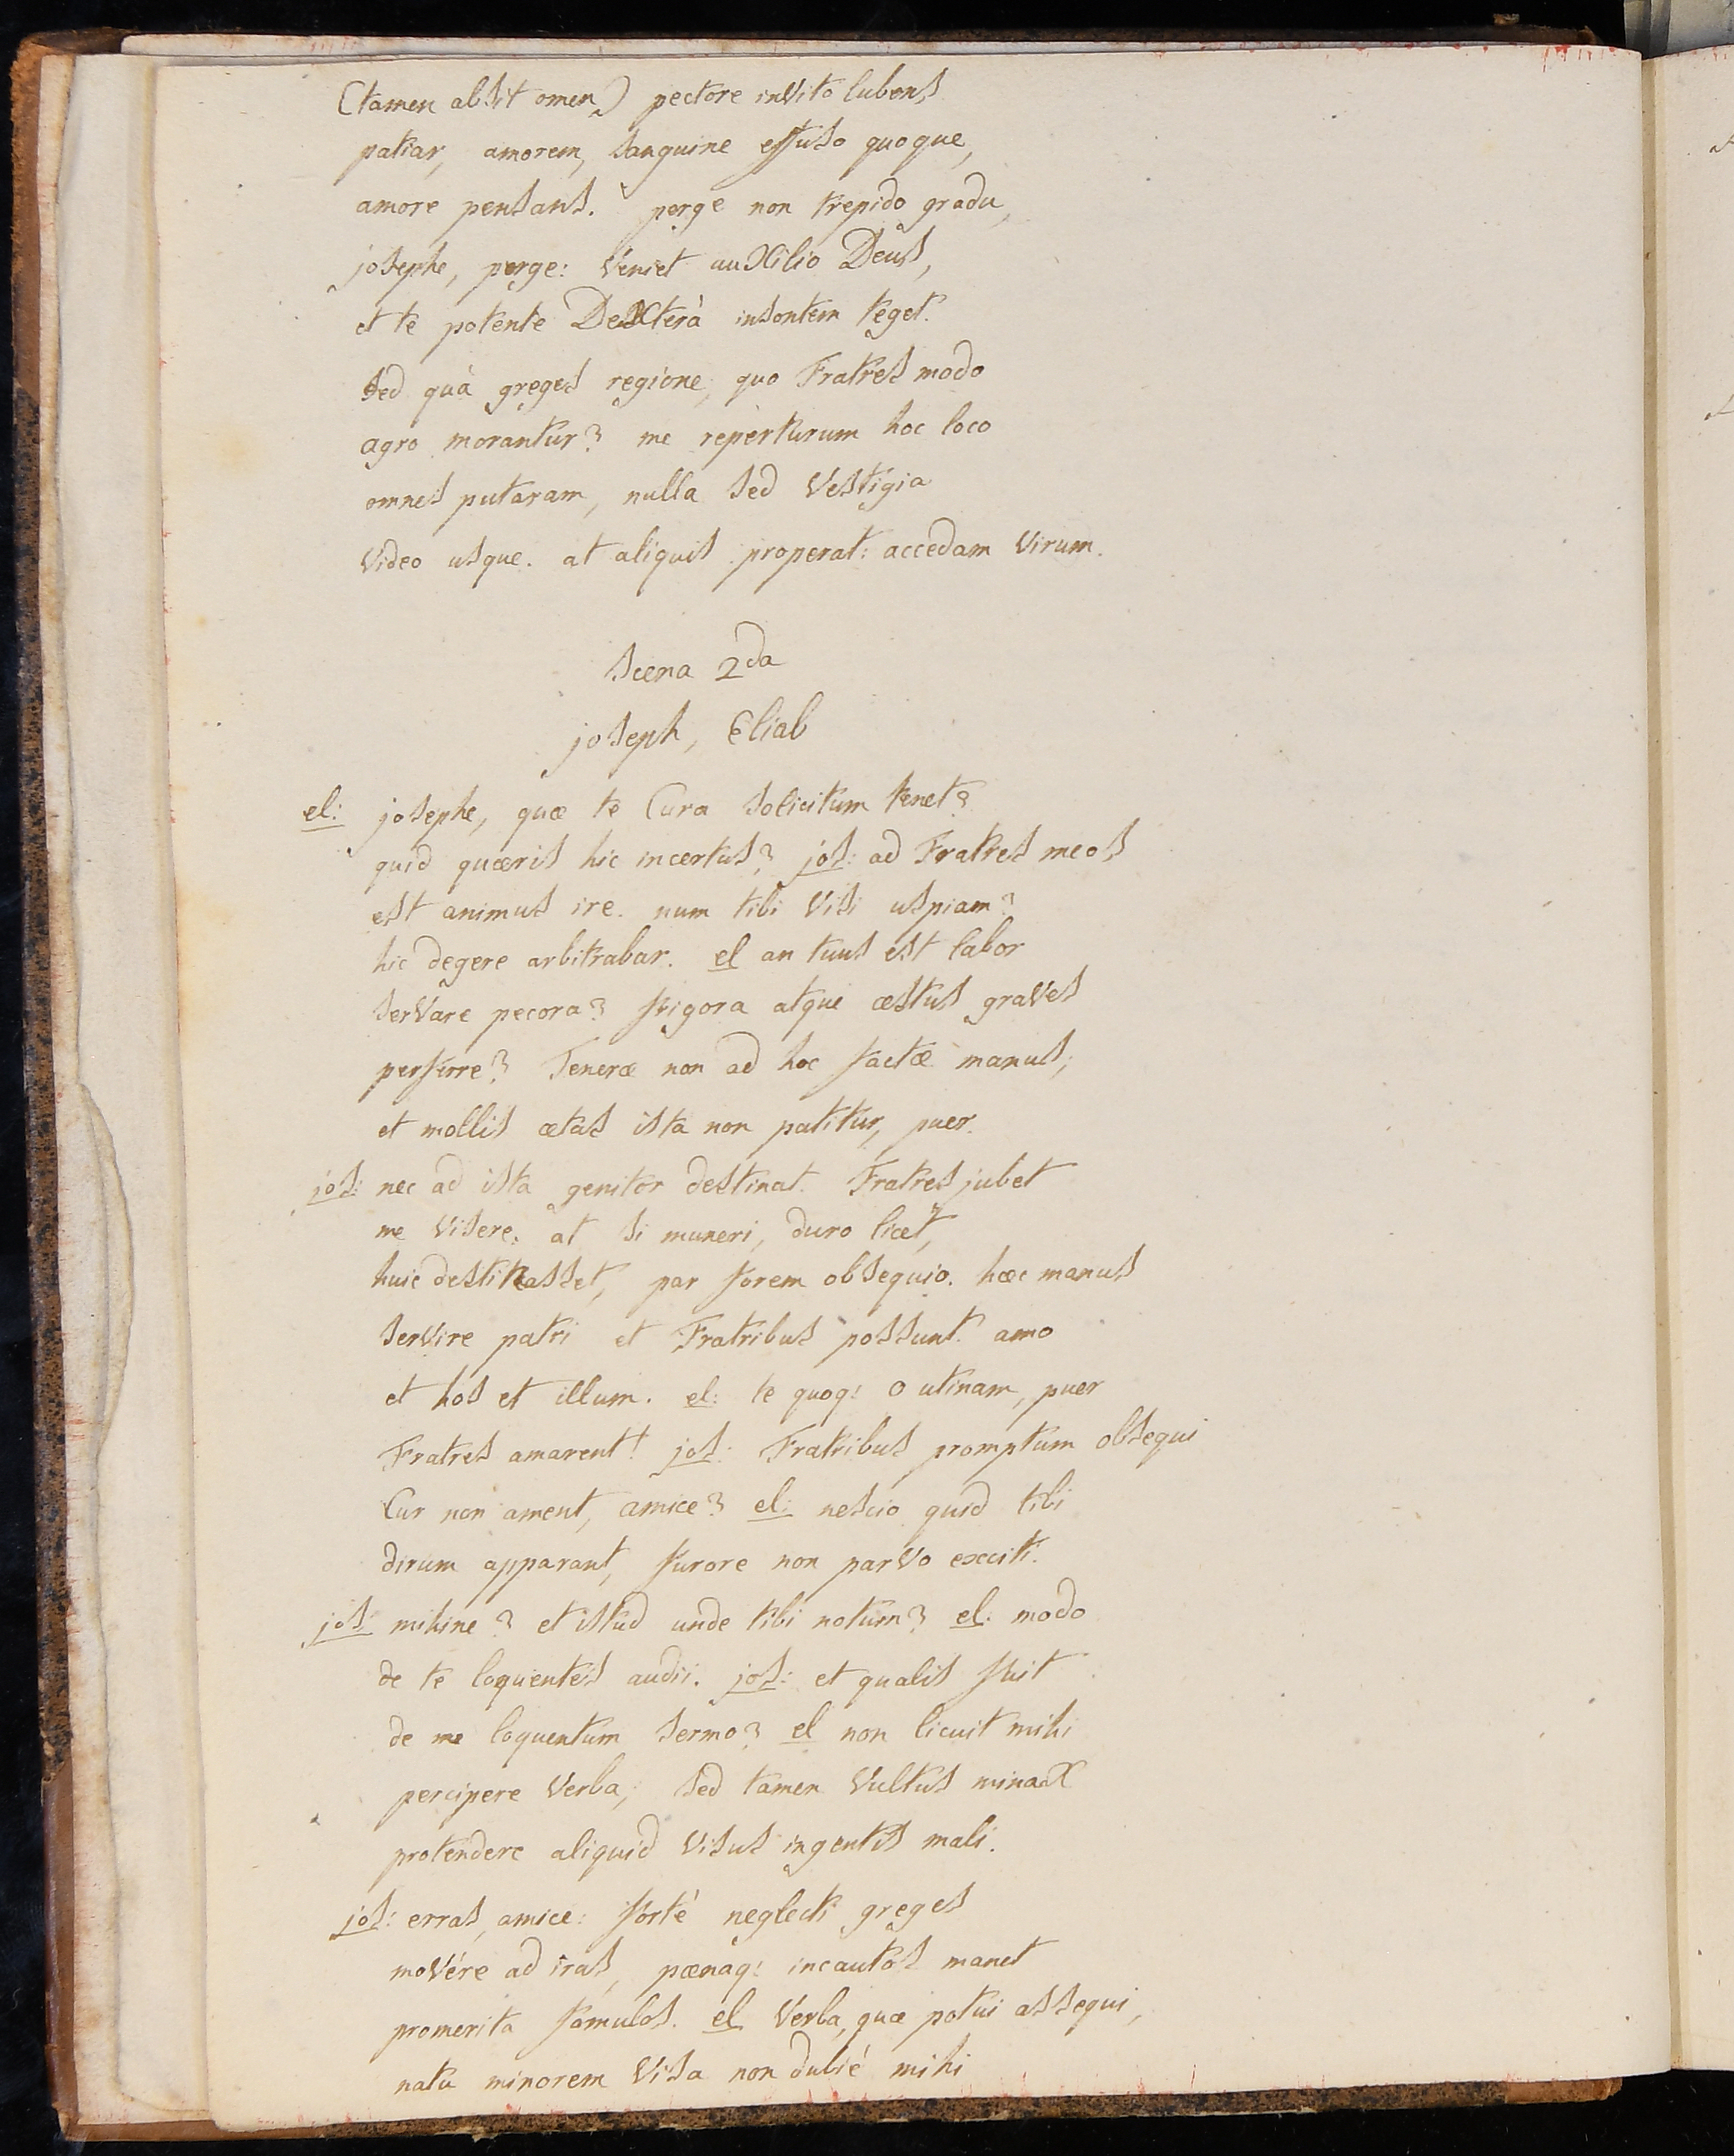 (tamen absit omen) pectore invito lubens
patiar, amorem, sanguine effuso quoque,
amore pensans. perge non trepido gradu,
josephe, perge: Veniet auxilio Deus,
et te potente Dexterà insontem teget.
sed quà greges regione, quo Fratres modo
agro morantur? me reperturum hoc loco
omnes putaram, nulla sed Vestigia
Video usque. at aliquis properat: accedam Virum.
Scena 2da
joseph, Eliab
el: josephe, quæ te Cura solicitum tenet?
quid quæris hic incertus? jos: ad Fratres meos
est animus ire. num tibi Visi uspiam?
hic degere arbitrabar. el an tuus est labor
serVare pecora? frigora atque æstus graVes
perferre? Teneræ non ad hoc factæ manus,
et mollis ætas ista non patitur, puer.
jos: nec ad ista genitor destinat. Fratres jubet
me Visere. at si muneri, duro licet,
huic destinasset, par forem obsequio. hæc manus
serVire patri et Fratribus possunt. amo
et hos et illum. el: te quoq: o utinam, puer
Fratres amarent! jos: Fratribus promptum obsequi
Cur non ament, amice? el: nescio quid tibi
dirum apparant, furore non parVo exciti.
jos: mihine? et istud unde tibi notum? el: modo
de te loquentes audii. jos: et qualis fuit
de me loquentum sermo? el non licuit mihi
percipere Verba, sed tamen Vultus minax
protendere aliquid Visus ingentis mali.
jos: erras, amice: fortè neglecti greges
moVére ad iras, pænaq: incautos manet
promerita famulos. el Verba, quæ potui assequi,
natu minorem Visa non dubié mihi